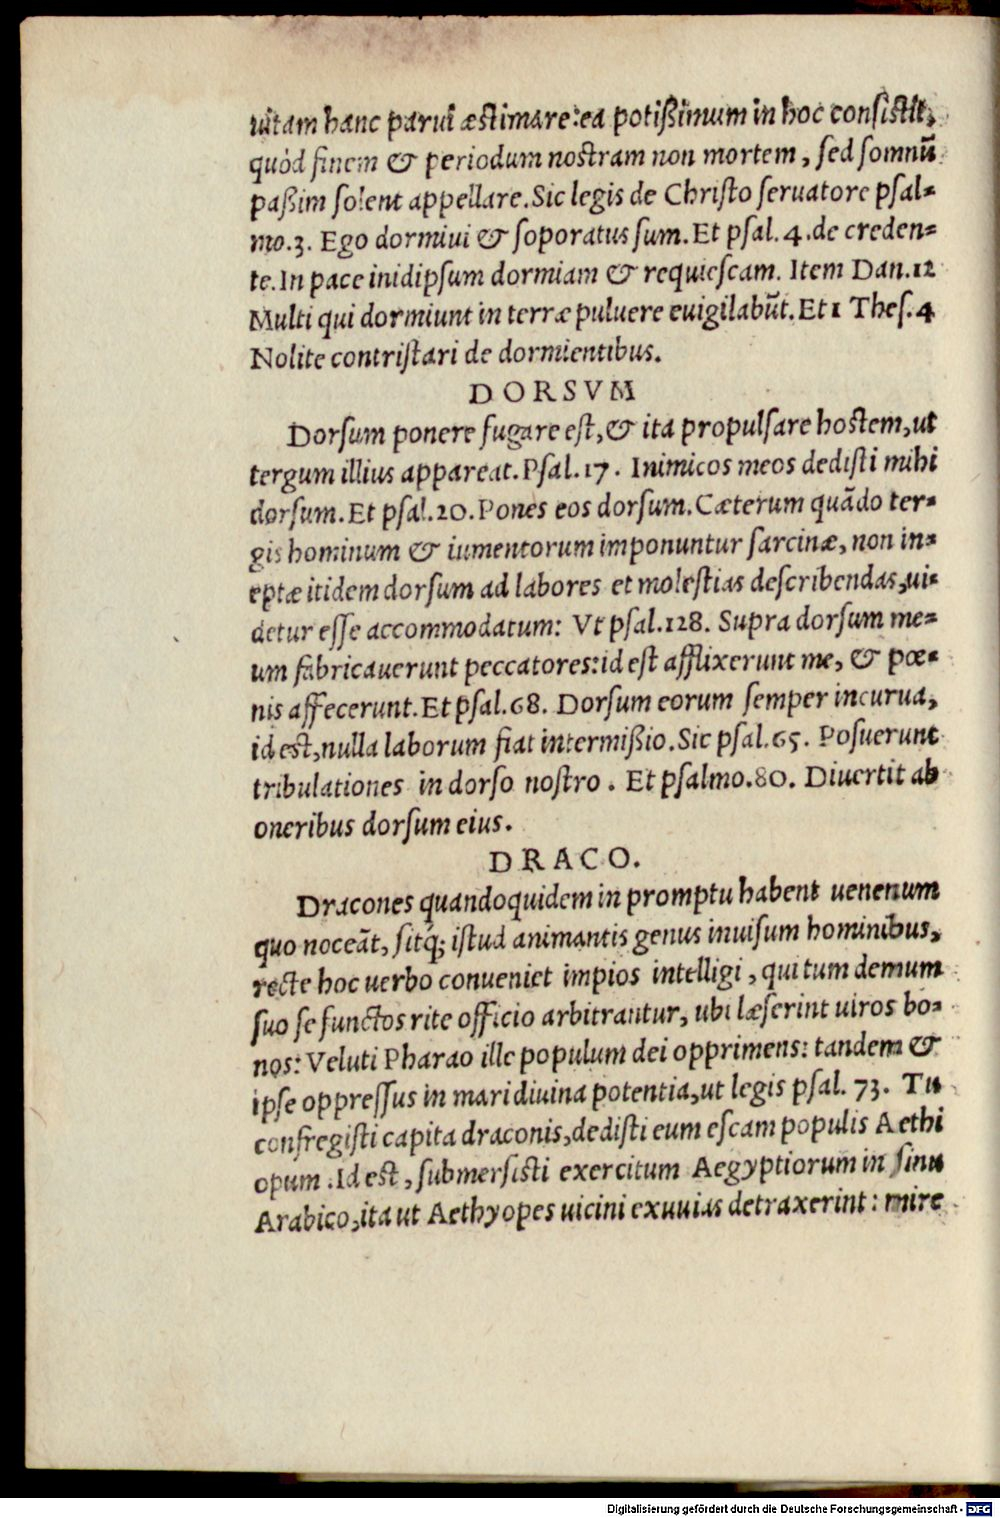 uitam hanc parui æstimare: ea potißimum in hoc consistit,
quòd finem & periodum nostram non mortem, sed somnũ
paßim solent appellare. Sic legis de Christo seruatore psal-
mo. 3. Ego dormiui & soporatus sum. Et psal. 4. de creden-
te. In pace inidipsum dormiam & requiescam. Item Dan. 12
Multi qui dormiunt in terræ puluere euigilabũt. Et 1 Thes. 4
Nolite contristari de dormientibus.
DORSVM
Dorsum ponere fugare est, & ita propulsare hostem, ut
tergum illius appareat. Psal. 17. Inimicos meos dedisti mihi
dorsum. Et psal. 20. Pones eos dorsum. Cæterum quãdo ter-
gis hominum & iumentorum imponuntur sarcinæ, non in-
eptæ itidem dorsum ad labores et molestias describendas, ui-
detur esse accommodatum: Vt psal. 128. Supra dorsum me-
um fabricauerunt peccatores: id est afflixerunt me, & pœ-
nis affecerunt. Et psal. 68. Dorsum eorum semper incurua,
id est, nulla laborum fiat intermißio. Sic psal. 65. Posuerunt
tribulationes in dorso nostro. Et psalmo. 80. Diuertit ab
oneribus dorsum eius.
DRACO.
Dracones quandoquidem in promptu habent uenenum
quo noceãt, sitq́; istud animantis genus inuisum hominibus,
recte hoc uerbo conueniet impios intelligi, qui tum demum
suo se functos rite officio arbitrantur, ubi læserint uiros bo-
nos: Veluti Pharao ille populum dei opprimens: tandem &
ipse oppressus in mari diuina potentia, ut legis psal. 73. Tu
confregisti capita draconis, dedisti eum escam populis Aethi
opum. Id est, submersisti exercitum Aegyptiorum in sinu
Arabico, ita ut Aethyopes uicini exuuias detraxerint: mire
Digitalisierung gefördert durch die Deutsche Forschungsgemeinschaft - DFG